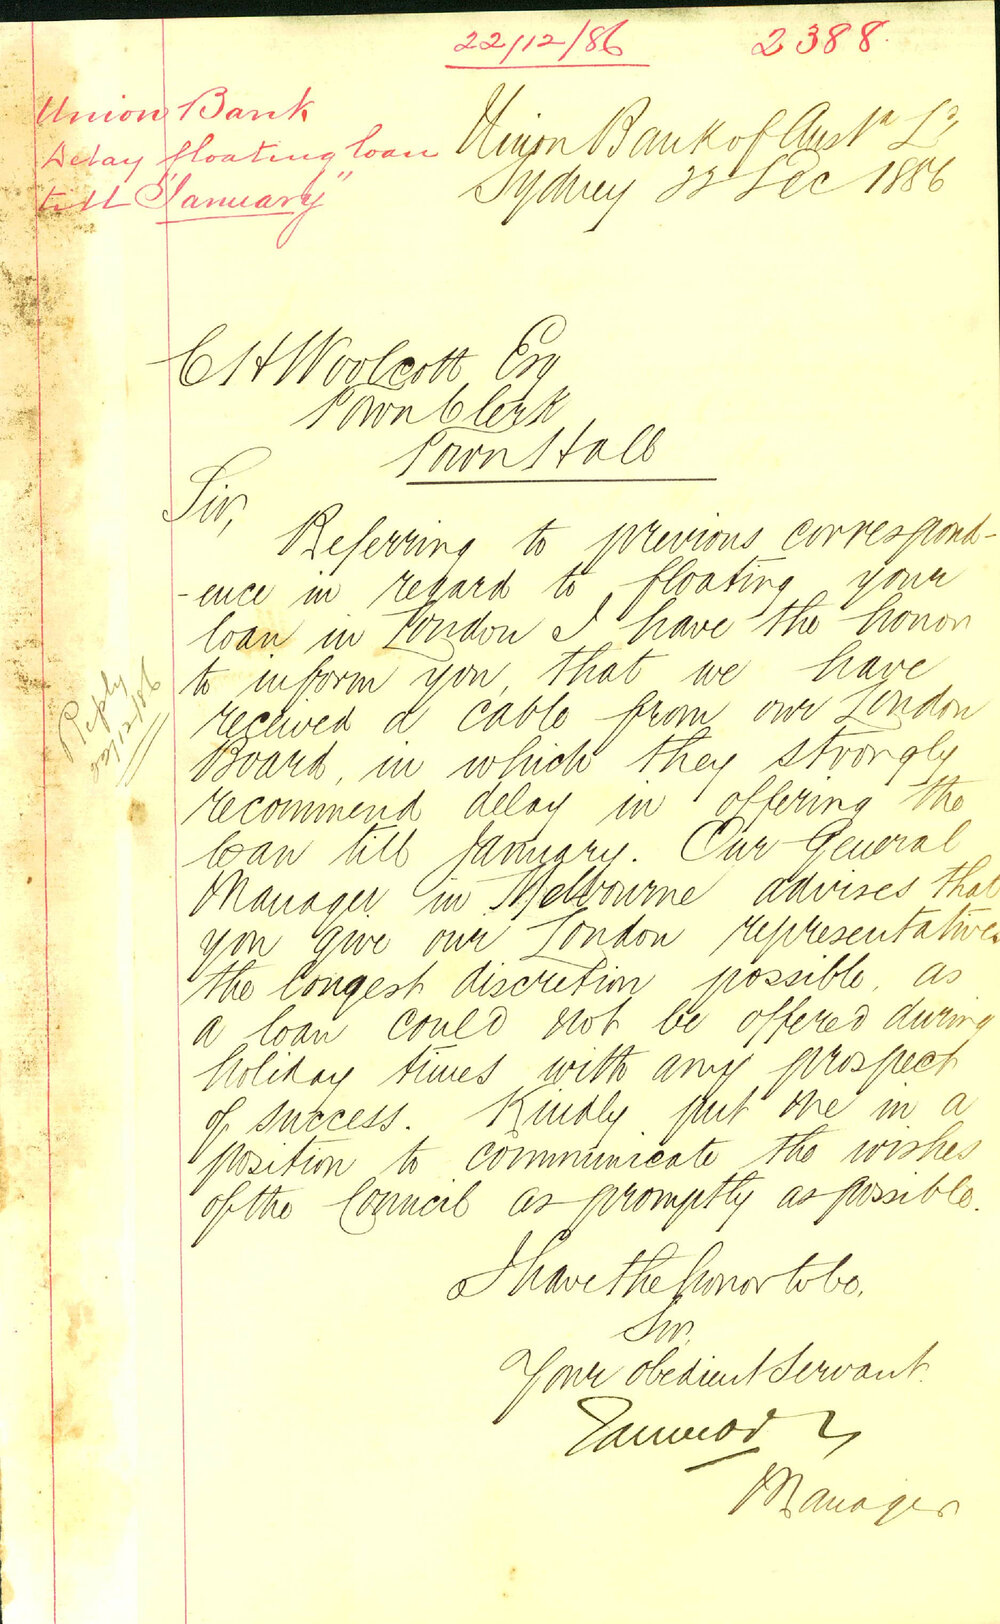 22/12/86
2388
Union Bank
Delay floating loan
till "January"
Union Bank of Austa Ld
Sydney 22 Dec 1886
C H Woolcott Esq
Town Clerk
Town Hall
Sir,
Referring to previous correspond-
-ence in regard to floating your
loan in London I have the honor
to inform you, that we have
received a cable from our London
Board, in which they strongly
recommend delay in offering the
loan till January. Our General
Manager in Melbourne advises that
you give our London representatives
the longest discretion possible, as
a loan could not be offered during
holiday times with any prospect
of success. Kindly put me in a
position to communicate the wishes
of the Council as promptly as possible.
I have the honor to be,
Sir,
Your obedient Servant.
Manager
Reply
22/12/86